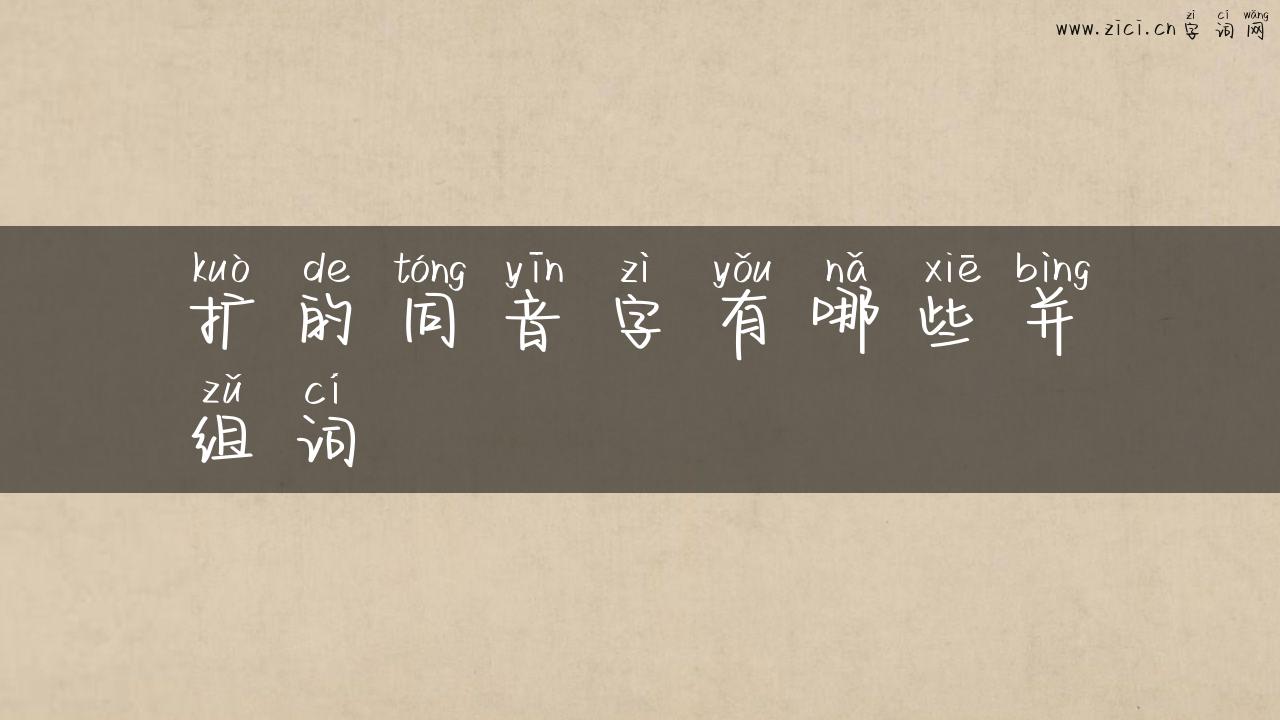 zì cí wǎng
www.zici.cn字词网
kuò de tóng yīn zì yǒu nǎ xiē bìng
扩的同音字有哪些并
zǔ cí
组词